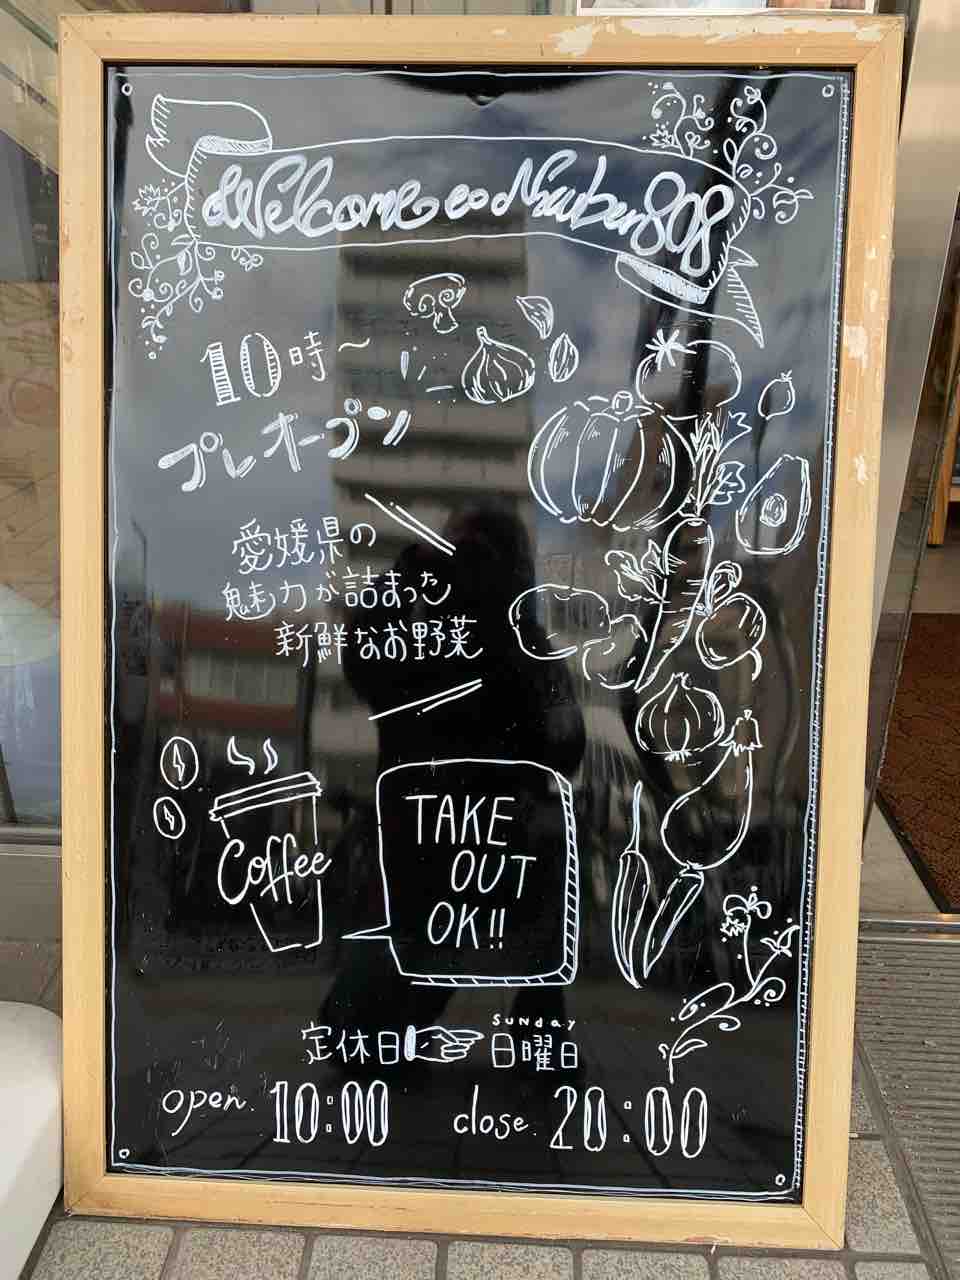 Welcome to Number 808
10時～
プレオープン
愛媛県の
魅力が詰まった
新鮮なお野菜
Coffee
TAKE
OUT
OK!!
sunday
定休日 日曜日
open. 10:00 close. 20:00